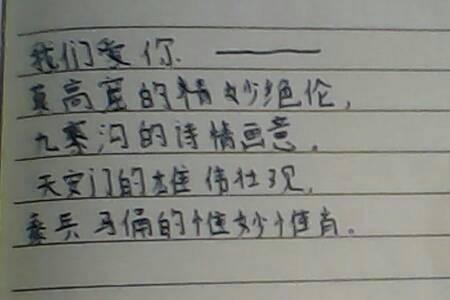 我们爱你 ——
莫高窟的精妙绝伦，
九寨沟的诗情画意，
天安门的雄伟壮观，
秦兵马俑的惟妙惟肖。